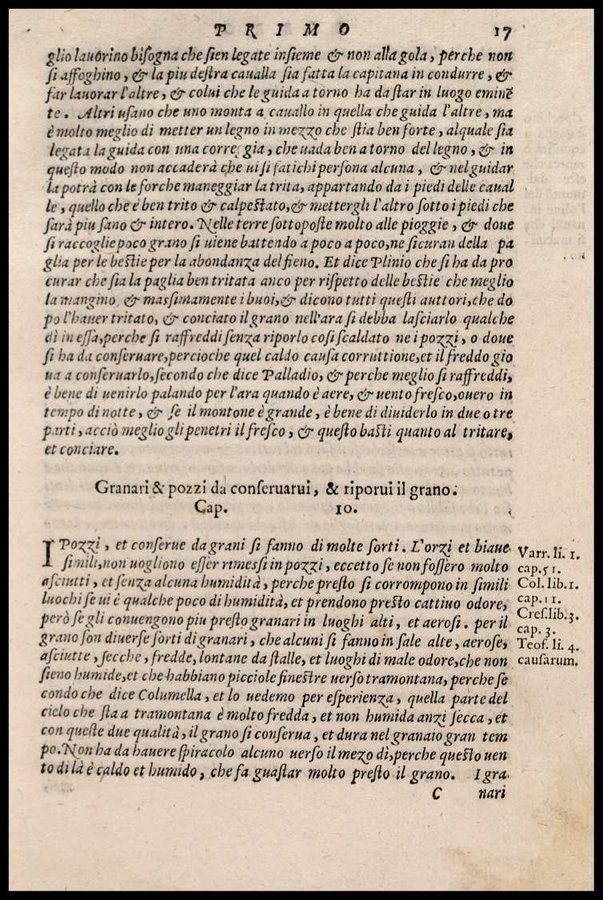 PRIMO 17
glio lauorino bisogna che sien legate insieme & non alla gola, perche non
si affoghino, & la piu destra caualla sia fatta la capitana in condurre, &
far lauorar l'altre, & colui che le guida a torno ha da star in luogo eminẽ
te. Altri usano che uno monta a cauallo in quella che guida l'altre, ma
è molto meglio di metter un legno in mezzo che stia ben forte, alquale sia
legata la guida con una correggia, che uada ben a torno del legno, & in
questo modo non accaderà che ui si fatichi persona alcuna, & nel guidar
la potrà con le forche maneggiar la trita, appartando da i piedi delle caual
le, quello che è ben trito & calpestato, & mettergli l'altro sotto i piedi che
sarà piu sano & intero. Nelle terre sottoposte molto alle pioggie, & doue
si raccoglie poco grano si uiene battendo a poco a poco, ne si curan della pa
glia per le bestie per la abondanza del fieno. Et dice Plinio che si ha da pro
curar che sia la paglia ben tritata anco per rispetto delle bestie che meglio
la mangino & massimamente i buoi, & dicono tutti questi auttori, che do
po l'hauer tritato, & conciato il grano nell'ara si debba lasciarlo qualche
dì in essa, perche si raffreddi senza riporlo cosi scaldato ne i pozzi, o doue
si ha da conseruare, percioche quel caldo causa corruttione, et il freddo gio
ua a conseruarlo, secondo che dice Palladio, & perche meglio si raffreddi,
è bene di uenirlo palando per l'ara quando è aere, & uento fresco, ouero in
tempo di notte, & se il montone è grande, è bene di diuiderlo in due o tre
parti, acciò meglio gli penetri il fresco, & questo basti quanto al tritare,
et conciare.
Granari & pozzi da conseruarui, & riporui il grano.
Cap. 10.
I Pozzi, et conserue da grani si fanno di molte sorti. L'orzi et biaue
simili, non uogliono esser rimessi in pozzi, eccetto se non fossero molto
asciutti, et senza alcuna humidità, perche presto si corrompono in simili
luochi se ui è qualche poco di humidità, et prendono presto cattiuo odore,
però se gli conuengono piu presto granari in luoghi alti, et aerosi. per il
grano son diuerse sorti di granari, che alcuni si fanno in sale alte, aerose,
asciutte, secche, fredde, lontane da stalle, et luoghi di male odore, che non
sieno humide, et che habbiano picciole finestre uerso tramontana, perche se
condo che dice Columella, et lo uedemo per esperienza, quella parte del
cielo che sta a tramontana è molto fredda, et non humida anzi secca, et
con queste due qualità, il grano si conserua, et dura nel granaio gran tem
po. Non ha da hauere spiracolo alcuno uerso il mezo dì, perche questo uen
to di là è caldo et humido, che fa guastar molto presto il grano. I gra
C nari
Varr. li. 1.
cap. 51.
Col. lib. 1.
cap. 11.
Cres. lib. 3.
cap. 3.
Teof. li. 4.
causarum.